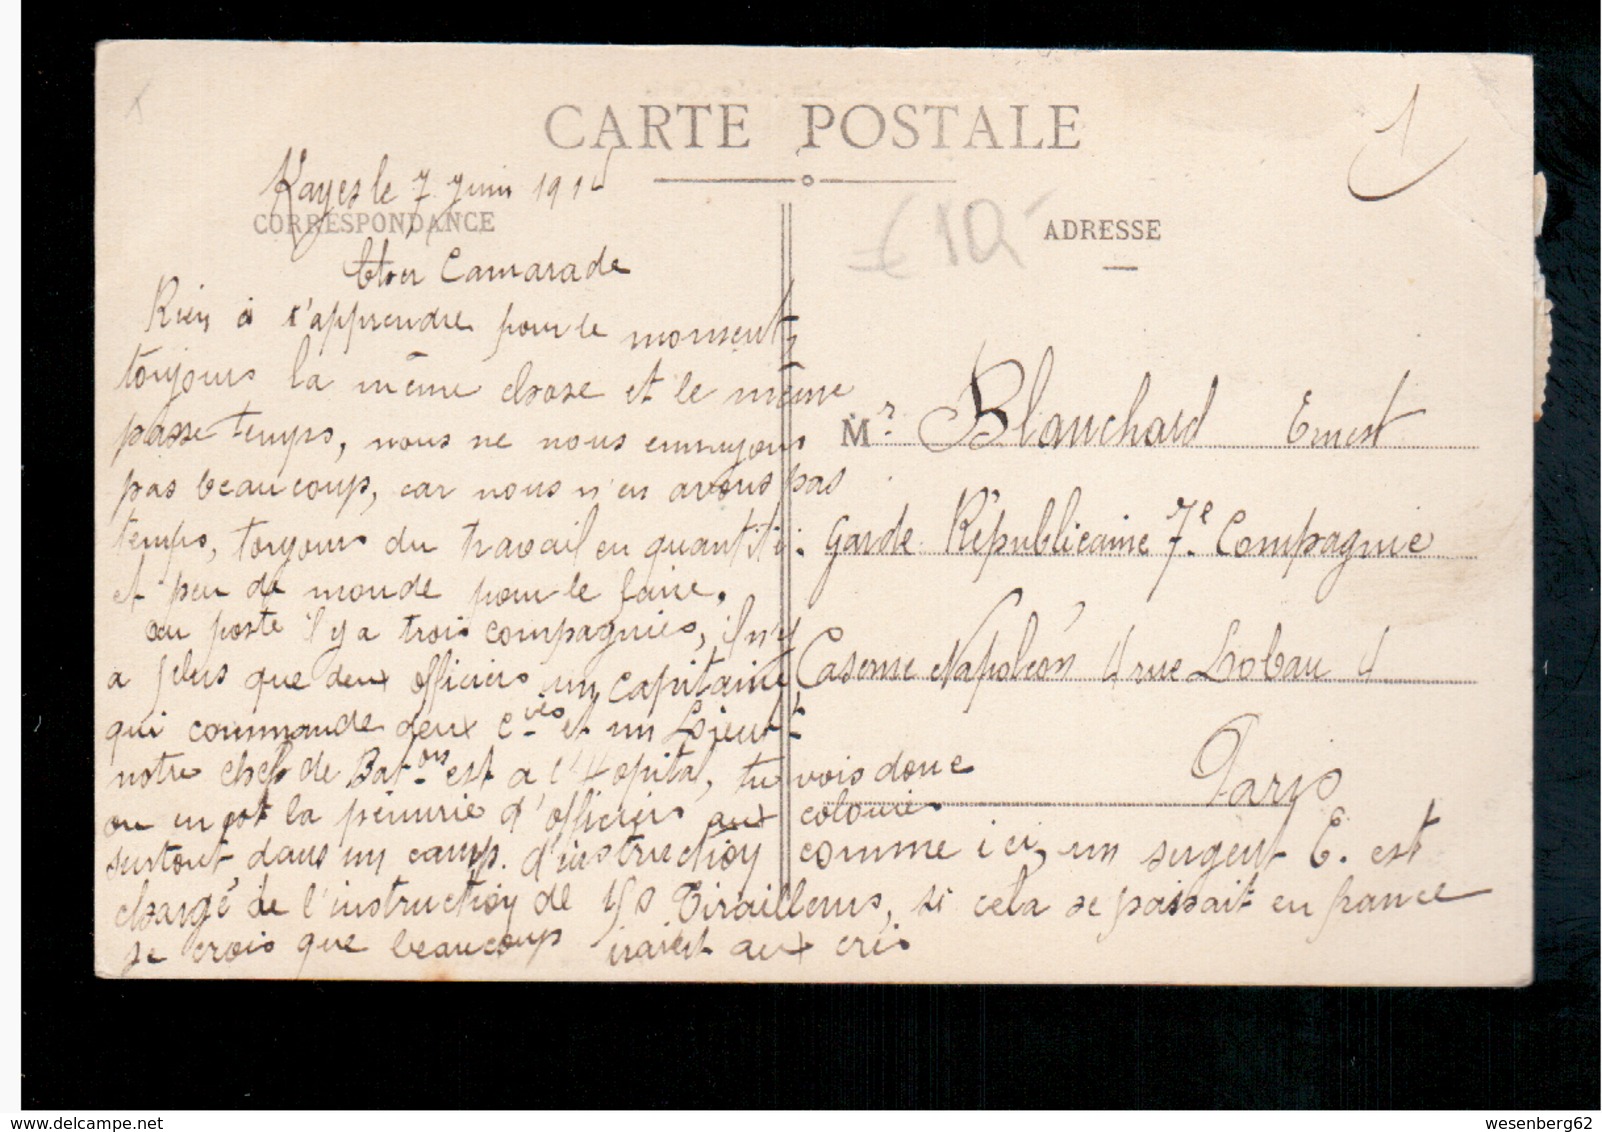 CARTE POSTALE
Kayes le 7 Juin 191
CORRESPONDANCE
Cher Camarade
Rien à t'apprendre pour le moment,
toujours la même chose et le même
passe temps, nous ne nous ennuyons
pas beaucoup, car nous n'en avons pas
temps, toujours du travail en quantité.
et peu de monde pour le faire.
au poste il y a trois compagnies, il n'y
a plus que deux officiers un capitaine
qui commande deux Cies et un Lieutt
notre chef de Batons est à l'Hopital, tu vois donc
ou en est la pénurie d'officiers aux colonies
surtout dans un camp. d'instruction comme ici, un sergent E. est
chargé de l'instruction de 150 Tirailleurs, si cela se passait en france
je crois que beaucoup iraient aux cris
€ 10
1
ADRESSE
Mr Blanchard Ernest
Garde Républicaine 7e Compagnie
Caserne Napoléon 4 rue Lobau 4
Paris
www.delcampe.net
wesenberg62